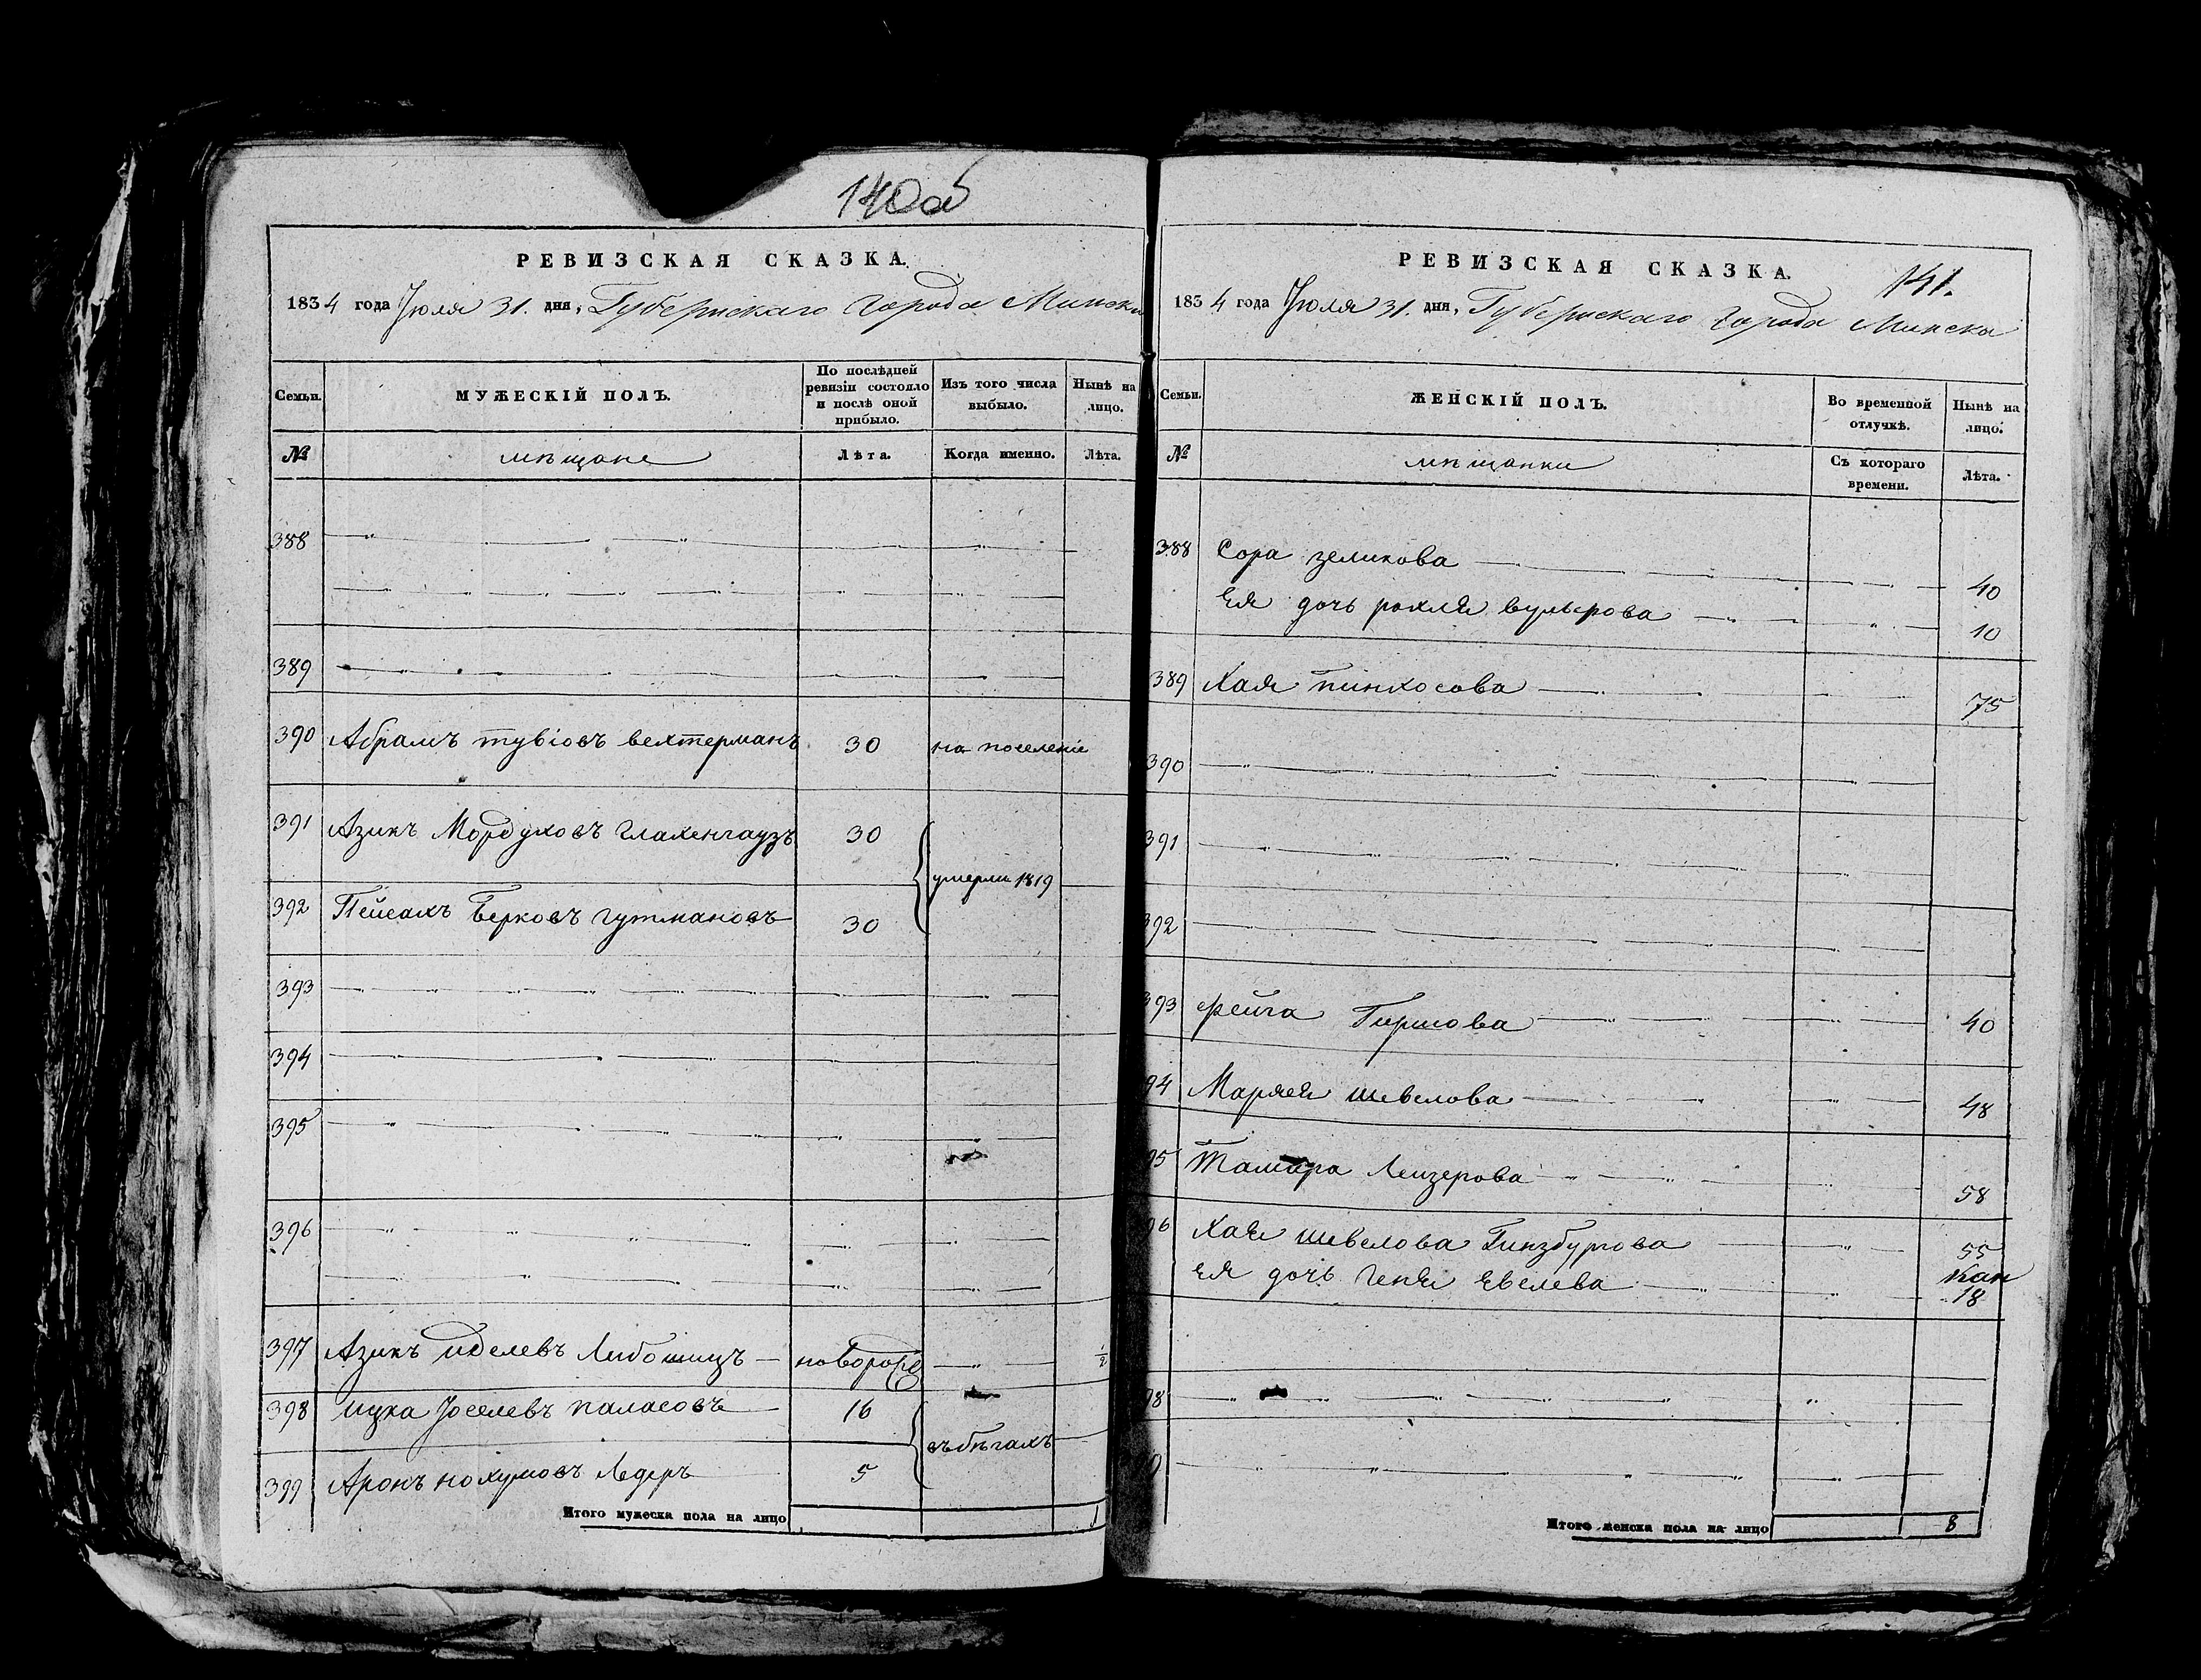 140 об
РЕВИЗСКАЯ СКАЗКА.
1834 года Іюля 31. дня, Губернскаго Города Минска
Семьи. МУЖЕСКІЙ ПОЛЪ. По послѣдней ревизіи состояло и послѣ оной прибыло. Изъ того числа выбыло. Нынѣ на лицо.
№ мѣщане Лѣта. Когда именно. Лѣта.
388
389
390 Абрамъ тувіовъ вехтерманъ 30 на поселеніе
391 Азикъ Мордуховъ глахенгаузъ 30
умерли 1819
392 Пейсахъ Берковъ гутмановъ 30
393
394
395
396
397 Азикъ иделевъ Либошицъ новорож 1/2
398 ицка Іоселевъ паласовъ 16
въ бѣгахъ
399 Аронъ нохумовъ Ледеръ 5
Итого мужеска пола на лицо 1
РЕВИЗСКАЯ СКАЗКА.
141.
1834 года Іюля 31. дня, Губернскаго Города Минска
Семьи. ЖЕНСКІЙ ПОЛЪ. Во временной отлучкѣ. Нынѣ на лицо.
№ мѣщанки Съ котораго времени. Лѣта.
388 Сора зеликова 40
Ея дочь рохля вульфова 10
389 Хая пинхосова 75
390
391
392
393 Фейга Гиршова 40
94 Маряся шевелова 48
95 Тамара Лейзерова 58
96 Хая шевелова Гинзбургова 55
ея дочь геня евелева 18
98
Итого женска пола на лицо 8